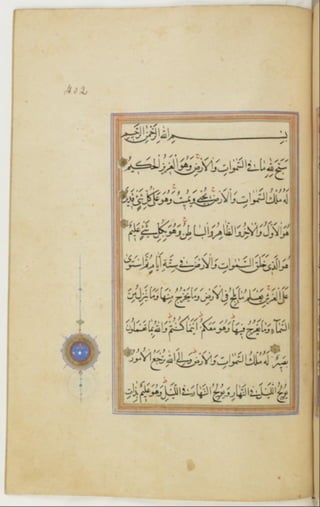 402
بسم الله الرحمن الرحيم
سبح لله ما في السموات والارض وهو العزيز الحكيم
له ملك السموات والارض يحيي ويميت وهو على كل شيء قدير
هو الاول والاخر والظاهر والباطن وهو بكل شيء عليم
هو الذي خلق السموات والارض في ستة ايام ثم استوى
على العرش يعلم ما يلج في الارض وما يخرج منها وما ينزل من
السماء وما يعرج فيها وهو معكم اينما كنتم والله بما تعملون
بصير له ملك السموات والارض والى الله ترجع الامور
يولج الليل في النهار ويولج النهار في الليل وهو عليم بذات